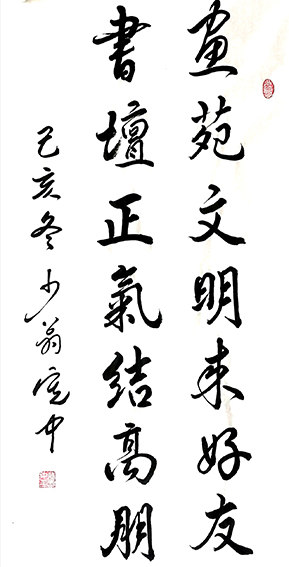 畫苑文明來好友
書壇正氣結高朋
己亥冬少翁寬中